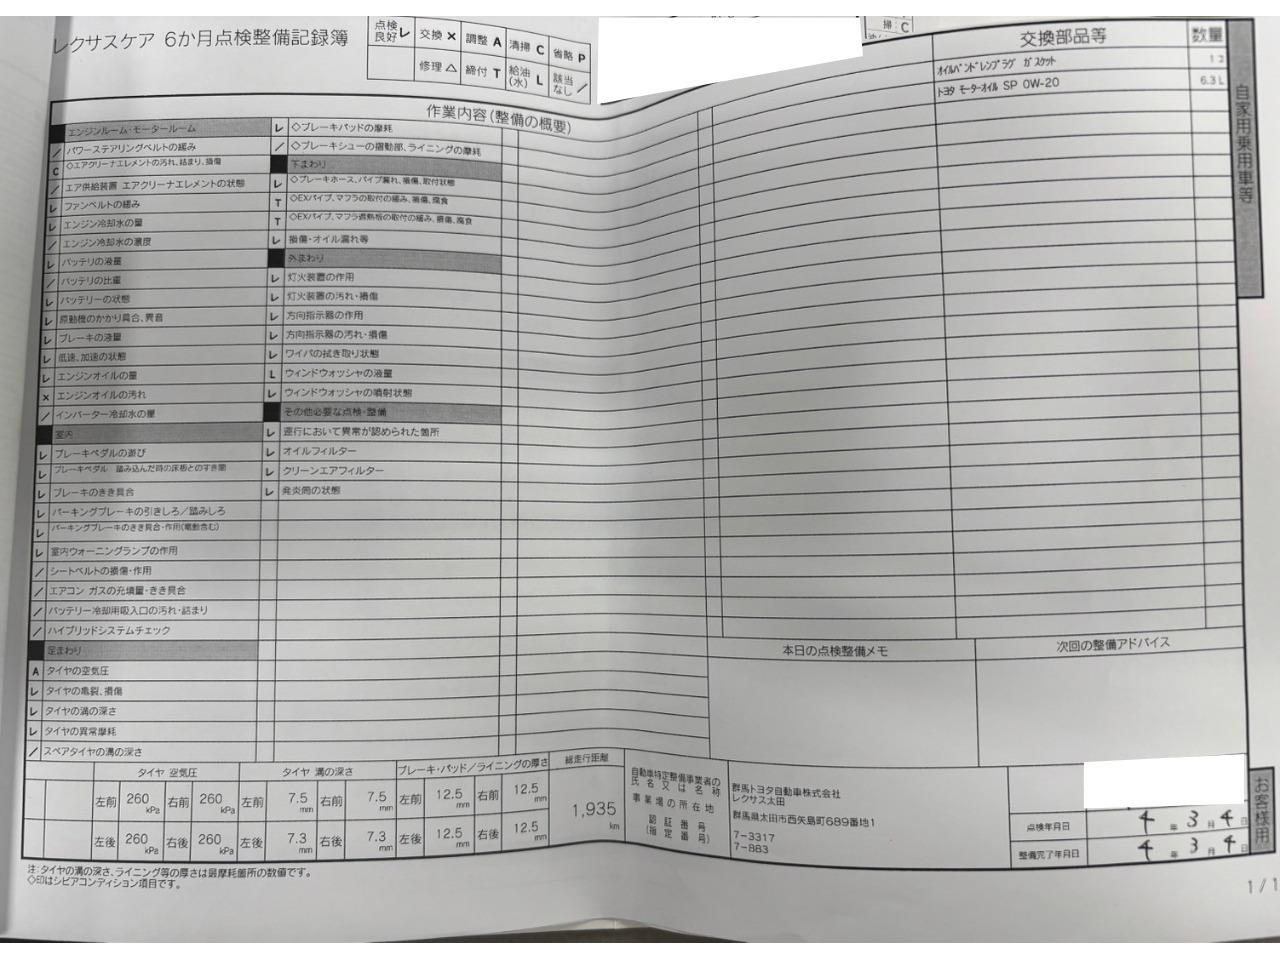 レクサスケア 6か月点検整備記録簿
点検良好 レ 交換 × 調整 A 清掃 C 省略 P
修理 △ 締付 T 給油(水) L 該当なし /
掃: C
交換部品等 数量
オイルパンドレンプラグ ガスケット 1コ
トヨタ モーターオイル SP 0W-20 6.3L
自家用乗用車等
作業内容(整備の概要)
エンジンルーム・モータールーム
/ パワーステアリングベルトの緩み
C ◇エアクリーナエレメントの汚れ、詰まり、損傷
/ エア供給装置 エアクリーナエレメントの状態
レ ファンベルトの緩み
レ エンジン冷却水の量
/ エンジン冷却水の濃度
レ バッテリの液量
/ バッテリの比重
レ バッテリーの状態
レ 原動機のかかり具合、異音
レ ブレーキの液量
レ 低速、加速の状態
レ エンジンオイルの量
× エンジンオイルの汚れ
/ インバーター冷却水の量
室内
レ ブレーキペダルの遊び
レ ブレーキペダル 踏み込んだ時の床板とのすき間
レ ブレーキのきき具合
レ パーキングブレーキの引きしろ/踏みしろ
レ パーキングブレーキのきき具合・作用(電動含む)
レ 室内ウォーニングランプの作用
/ シートベルトの損傷・作用
/ エアコン ガスの充填量・きき具合
/ バッテリー冷却用吸入口の汚れ・詰まり
/ ハイブリッドシステムチェック
足まわり
A タイヤの空気圧
レ タイヤの亀裂、損傷
レ タイヤの溝の深さ
レ タイヤの異常摩耗
/ スペアタイヤの溝の深さ
レ ◇ブレーキパッドの摩耗
/ ◇ブレーキシューの摺動部、ライニングの摩耗
下まわり
レ ◇ブレーキホース、パイプ漏れ、損傷、取付状態
T ◇EXパイプ、マフラの取付の緩み、損傷、腐食
T ◇EXパイプ、マフラ遮熱板の取付の緩み、損傷、腐食
レ 損傷・オイル漏れ等
外まわり
レ 灯火装置の作用
レ 灯火装置の汚れ・損傷
レ 方向指示器の作用
レ 方向指示器の汚れ・損傷
レ ワイパの拭き取り状態
L ウィンドウォッシャの液量
レ ウィンドウォッシャの噴射状態
その他必要な点検・整備
レ 運行において異常が認められた箇所
レ オイルフィルター
レ クリーンエアフィルター
レ 発炎筒の状態
本日の点検整備メモ 次回の整備アドバイス
タイヤ 空気圧 タイヤ 溝の深さ ブレーキ・パッド/ライニングの厚さ 総走行距離
左前 260 kPa 右前 260 kPa 左前 7.5 mm 右前 7.5 mm 左前 12.5 mm 右前 12.5 mm
左後 260 kPa 右後 260 kPa 左後 7.3 mm 右後 7.3 mm 左後 12.5 mm 右後 12.5 mm
1,935 km
自動車特定整備事業者の氏名又は名称
事業場の所在地
認証番号
(指定番号)
群馬トヨタ自動車株式会社
レクサス太田
群馬県太田市西矢島町689番地1
7-3317
7-883
点検年月日 4 年 3 月 4 日
整備完了年月日 4 年 3 月 4 日
お客様用
注:タイヤの溝の深さ、ライニング等の厚さは最摩耗箇所の数値です。
◇印はシビアコンディション項目です。
1/1